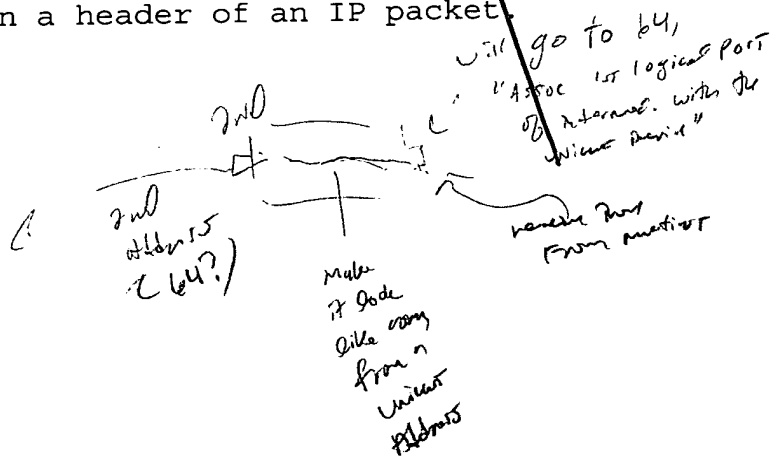 n a header of an IP packet.
will go to 64,
"Assoc 1st logical port
of intermed. with the
unicast device"
2nd
2nd
Address
(64?)
receive
From multicast
Make
it look
like
from a
unicast
Address